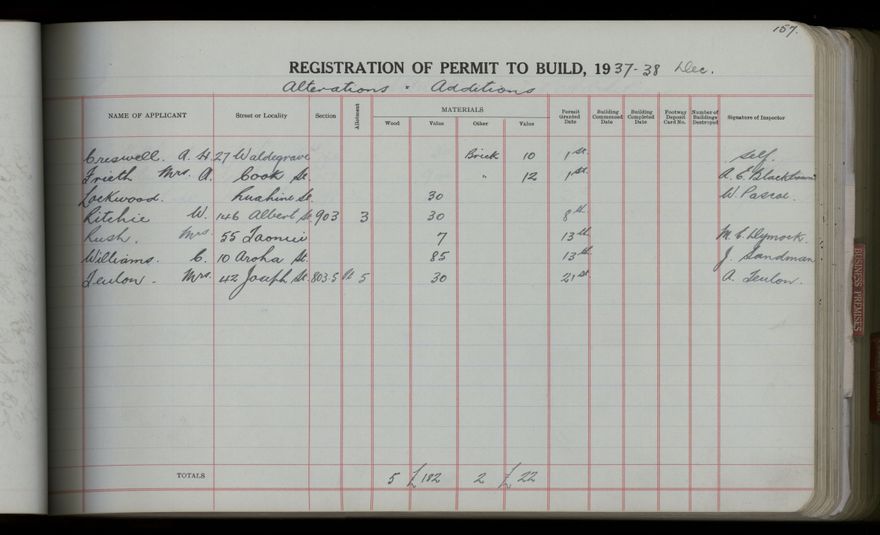 157.
REGISTRATION OF PERMIT TO BUILD, 1937-38 Dec.
Alterations & Additions
NAME OF APPLICANT Street or Locality Section Allotment MATERIALS Wood Value Other Value Permit Granted Date Building Commenced Date Building Completed Date Footway Deposit Card No. Number of Buildings Destroyed Signature of Inspector
Creswell. A. H. 27 Waldegrave Brick 10 1st. Self.
Frieth Mrs. A. Cook St. " 12 1st. A. E. Blackburn
Lockwood. Ruahine St. 30 W. Pascoe.
Ritchie W. 146 Albert St. 903 3 30 8th.
Rush. Mrs. 55 Taonui 7 13th. M. C. Dymock.
Williams. C. 10 Aroha St. 85 13th. J. Sandman
Teulon. Mrs. 42 Joseph St. 803.5 5 30 21st. A. Teulon.
TOTALS 5 £182 2 £22
BUSINESS PREMISES